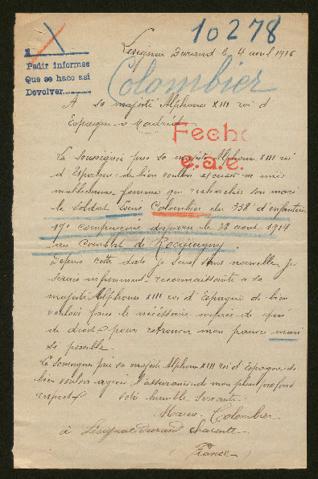 10278
Lésignac Durand le 4 avril 1916
1
Pedir informes
Que se haco asi
Devolver
Colombier
A sa majesté Alphonse XIII roi d'
Espagne à Madrid
Fecho
e.a.e.
La Soussignée prie sa majesté Alphonse XIII roi
d'Espagne de bien vouloir une
malheureuse femme qui recherche son mari
le soldat Colombier du 338e d'infanterie
19e compagnie disparu le 28 août 1914
au Combat de Rocquigny
Depuis cette date je suis sans nouvelle je
serais infiniment reconnaissante à sa
majesté Alphonse XIII roi d'Espagne de bien
vouloir faire le nécessaire auprès de qui
de droit pour retrouver mon pauvre mari
si possible
La Soussignée prie sa majesté Alphonse XIII roi d'Espagne de
bien vouloir agréer l'assurance de mon plus profond
respect
Votre humble servante
Colombier
à Lésignac Durand Charente
France